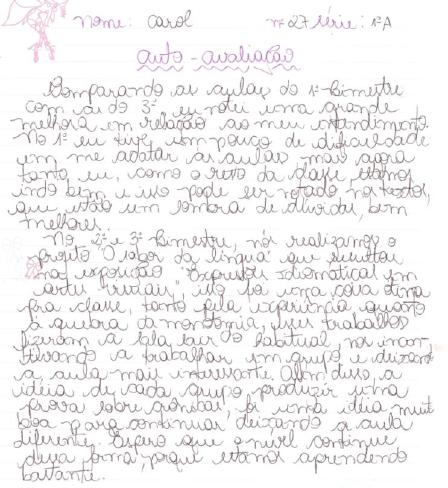 Nome: Carol nº 27 série: 1ª A
auto-avaliação
Comparando as aulas do 1º Bimestre
com as do 3º, eu notei uma grande
melhora em relação ao meu entendimento.
No 1º eu tive um pouco de dificuldade
em me adatar às aulas, mas agora
tanto eu, como o resto da classe, estamos
indo bem e isso pode ser notado nos textos,
que estão sem sombra de dúvidas, bem
melhores.
No 2º e 3º Bimestre, nós realizamos o
projeto "O sabor da língua" que resultou
na exposição "Expressões Idiomáticas em
artes visuais", isso foi uma coisa ótima
pra classe, tanto pela experiência quanto
à quebra da monotomia, esses trabalhos
fizeram a sala sair do habitual, nos incen-
tivando a trabalhar em grupo e deixando
a aula mais interessante. Além disso, a
idéia de cada grupo produzir uma
prova sobre foi uma idéia muito
boa para continuar deixando a aula
diferente. Espero que o nível continue
dessa forma, porque estamos aprendendo
bastante.